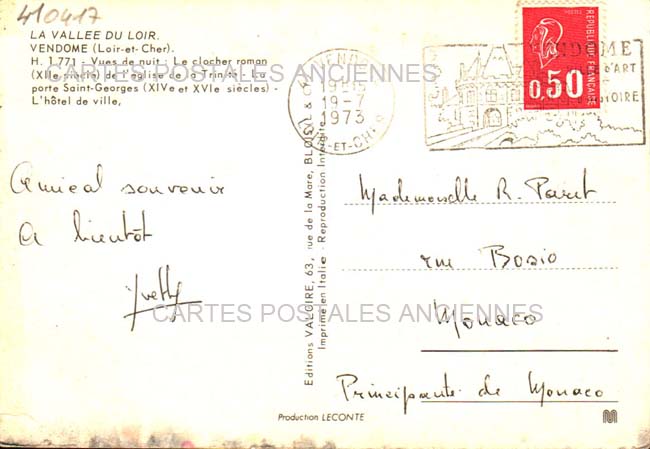 410417
LA VALLEE DU LOIR.
VENDOME (Loir-et-Cher).
H. 1.771 - Vues de nuit : Le clocher roman
(XIIe siècle) de l'église de la Trinité - La
porte Saint-Georges (XIVe et XVIe siècles) -
L'hôtel de ville,
CARTES POSTALES ANCIENNES
VENDOME
19-7
1973
LOIR-ET-CHER
VENDOME
D'ART
REPUBLIQUE FRANÇAISE
0,50
Amical souvenir
A bientôt
Yvetty
Editions VALOIRE, 63, rue de la Mare, BLOIS, L. & C.
Imprimé en Italie - Reproduction Interdite
Mademoiselle R. Paret
rue Bosio
Monaco
Principauté de Monaco
CARTES POSTALES ANCIENNES
Production LECONTE